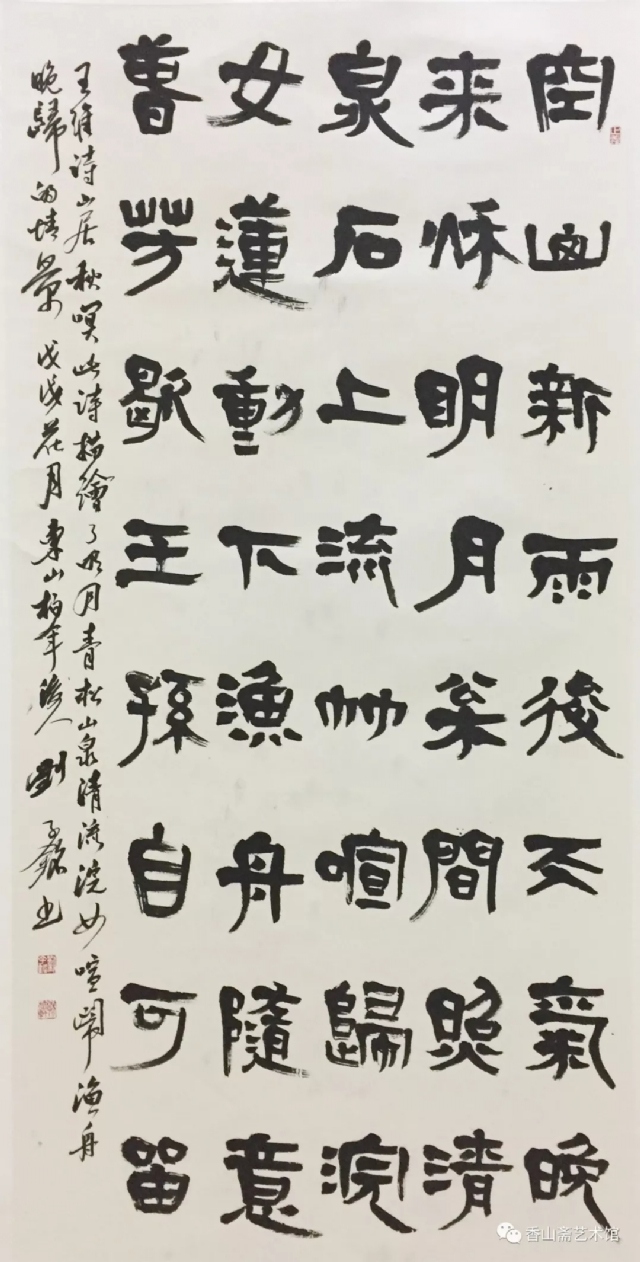 空山新雨後天氣晚
来秌明月枀間照清
泉石上流竹喧歸浣
女蓮動下漁舟隨意
春芳歇王孫自可留
王維诗山居秋暝此诗描繪了明月青松山泉清流浣女喧鬧渔舟
晚歸的情景 戊戌花月東山柏年後人劉子銘书
香山斋艺术馆